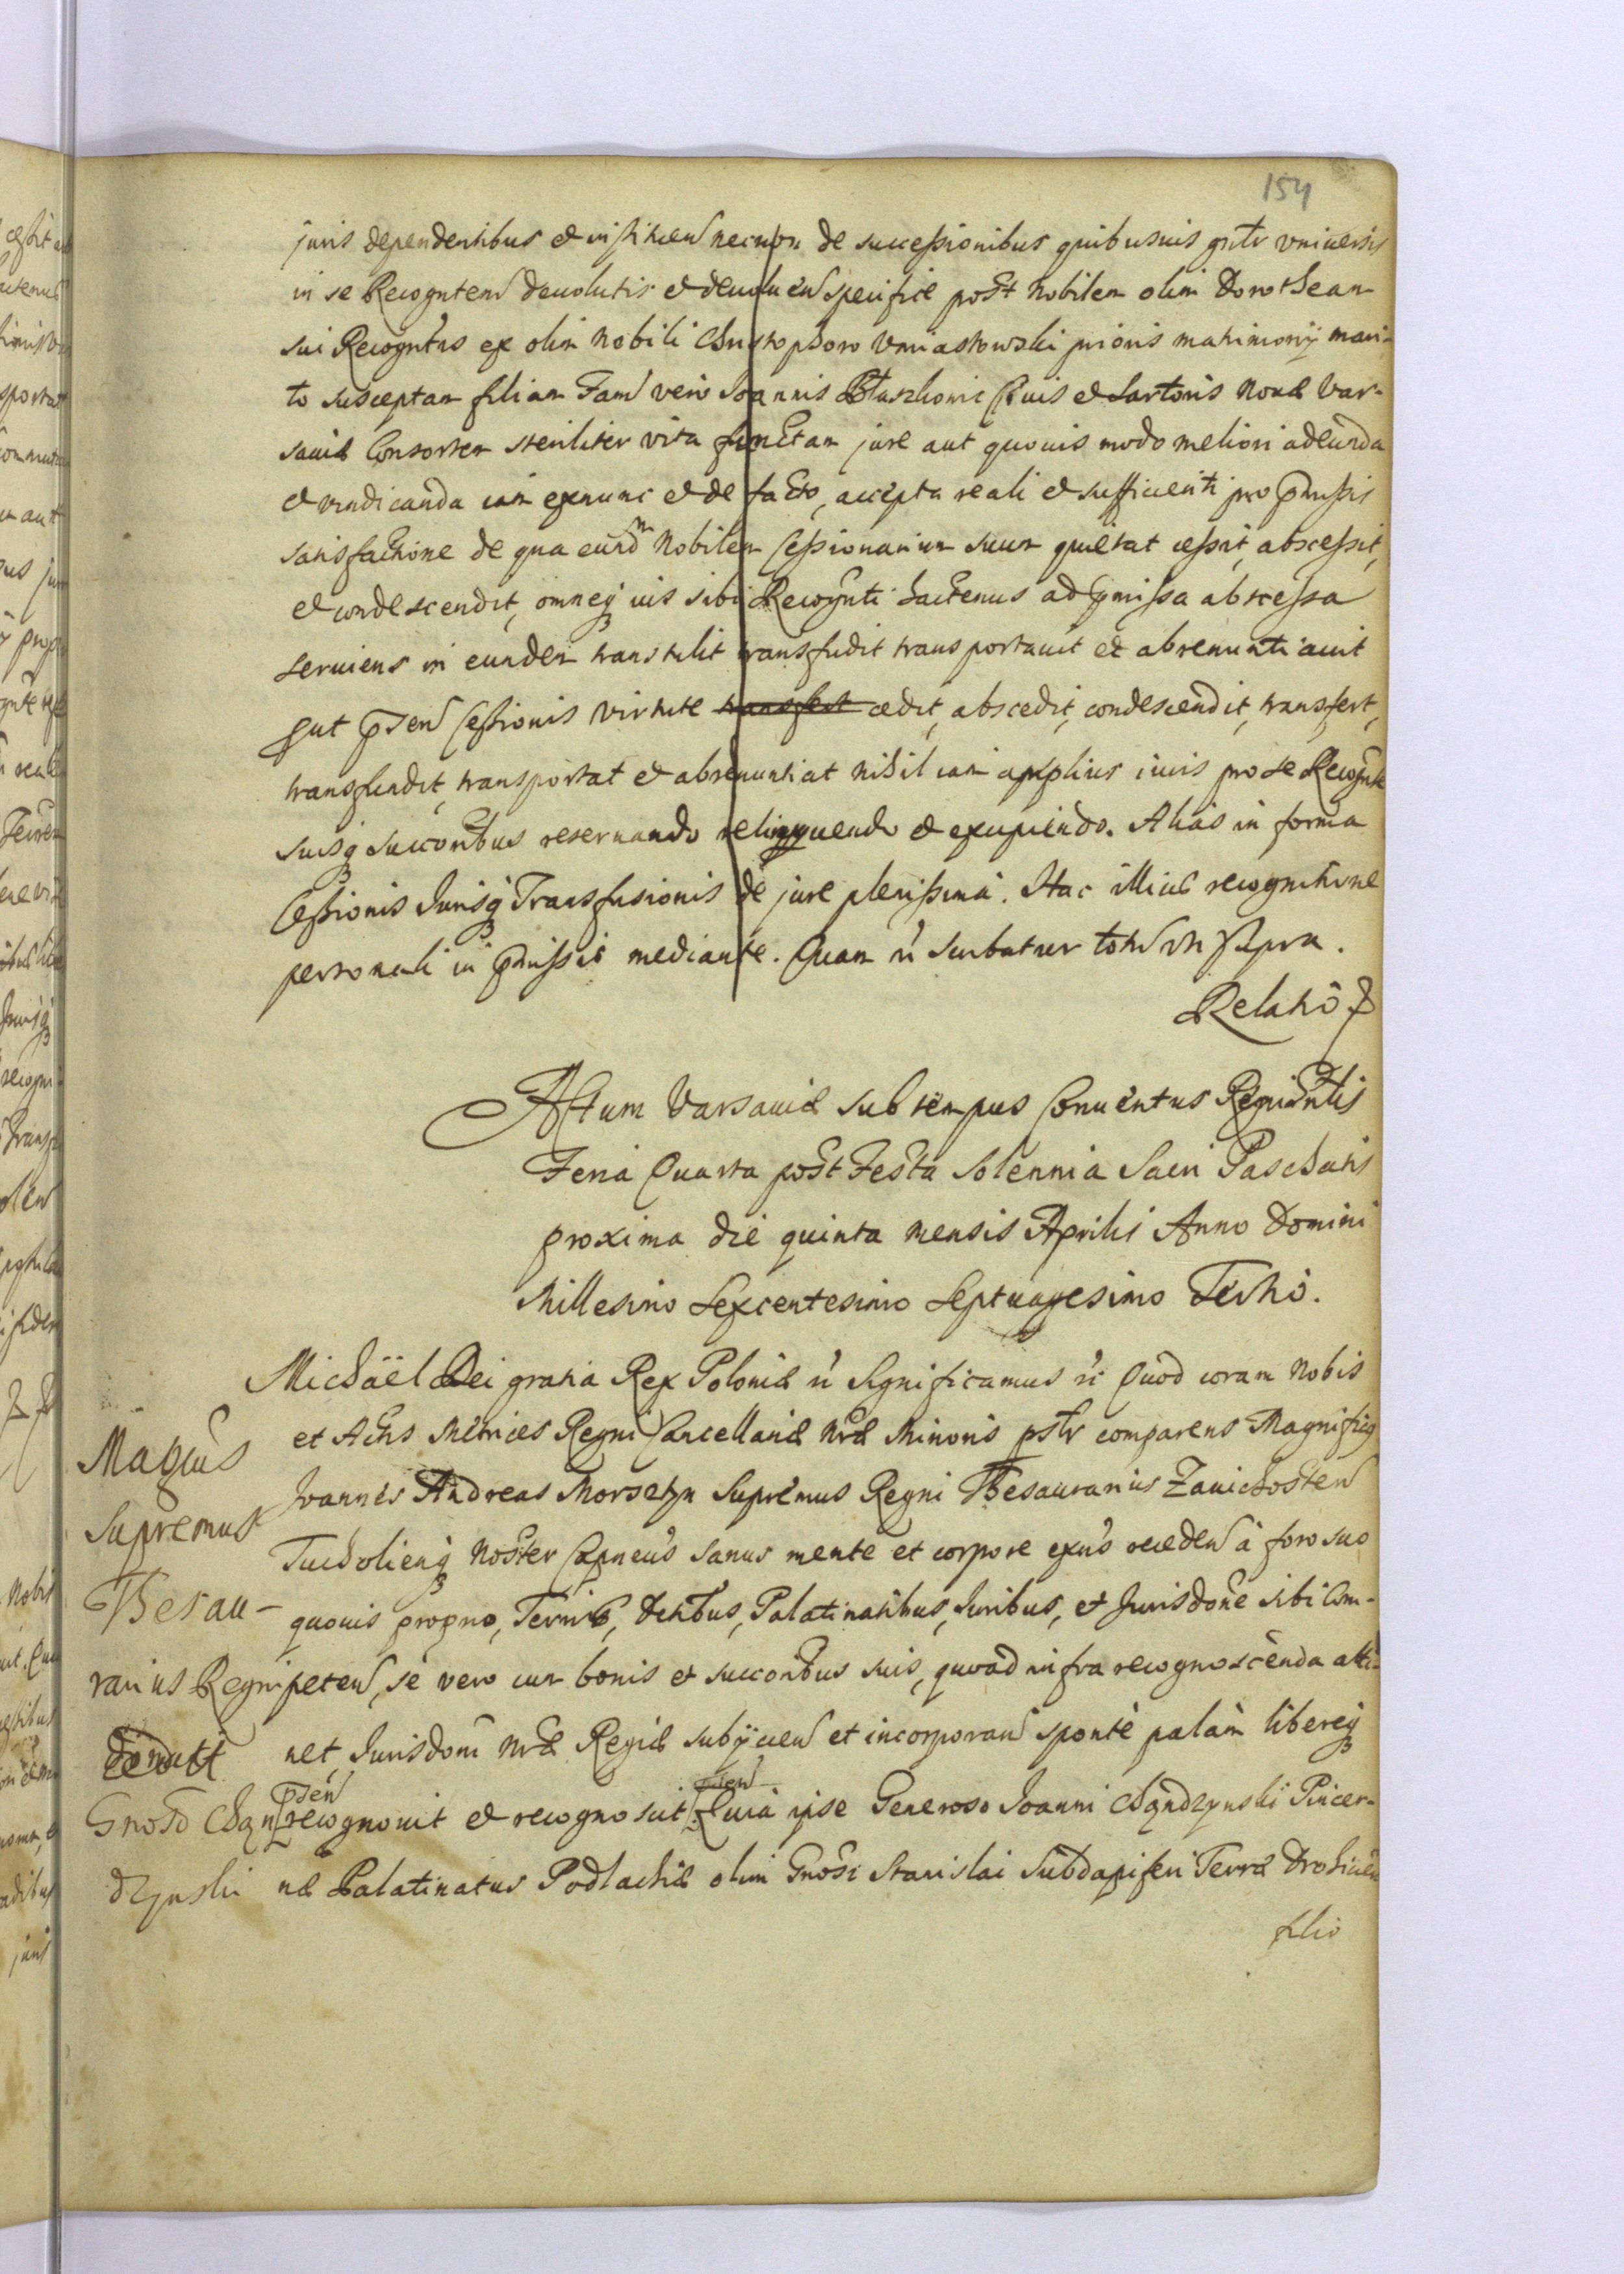 154
juris dependentibus et instituen necnon de successionibus quibusuis gntr vniuersis
in se Recognten deuolutis et deuoluen specifice post Nobilem olim Dorotheam
sui Recogntis ex olim Nobili Christophoro Vniastowski prioris matrimonij mari-
to susceptam filiam Fam vero Joannis Ciuis et Sartoris Nouæ Var-
sauiæ Consortem steriliter vita functam jure aut quouis modo meliori adeunda
et vindicanda iam exnunc et de facto, accepta reali et sufficienti pro pmissis
satisfactione de qua eundm Nobilem Cessionarium suum quietat cessit, abscessit,
et condescendit, omneq ius sibi Recognti hactenus ad pmissa abscessa
seruiens in eundem transtulit transfudit transportauit et abrenuntiauit
put psen Cessionis virtute transfert cedit, abscedit, condescendit, transfert,
transfundit, transportat et abrenuntiat nihil iam amplius iuris pro se Recognte
suisq succoribus reseruando relinquendo et excipiendo. Alias in forma
Cessionis Jurisq Transfusionis de jure plenissima. Hac illius recognitione
personali in pmissis mediante. Quam rc scribatur totum vt supra.
Relatio
Actum Varsauiæ sub tempus Conuentus Regni
Feria Quarta post Festa Solennia Sacri Paschatis
proxima die quinta mensis Aprilis Anno Domini
Millesimo Sexcentesimo Septuagesimo Tertio.
Michaël Dei gratia Rex Poloniæ rc Significamus rc Quod coram Nobis
et Actis Metrices Regni Cancellariæ Nræ Minoris pstr comparens Magnificq
Joannes Andreas Morsztyn Supremus Regni Thesaurarius Zauichosten
Tucholienq Noster Capneus sanus mente et corpore exns receden à foro suo
quouis proprio, Terris, Dttibus, Palatinatibus, Juribus, et Jurisdone sibi com-
peten, se vero cum bonis et succoribus suis, quoad infra recognoscenda atti-
net, Jurisdoni Nræ Regiæ subijcien et incorporan sponte palam libereq
psen
recognouit et recognoscit Quia ipse Generoso Joanni Chądzynski Pincer-
næ Palatinatus Podlachiæ olim Gnosi Stanislai Subdapiferi Terræ Drohicen
filio
Magcus
Supremus
Thesau-
rarius Regni
Gnoso Chąn
dzynski